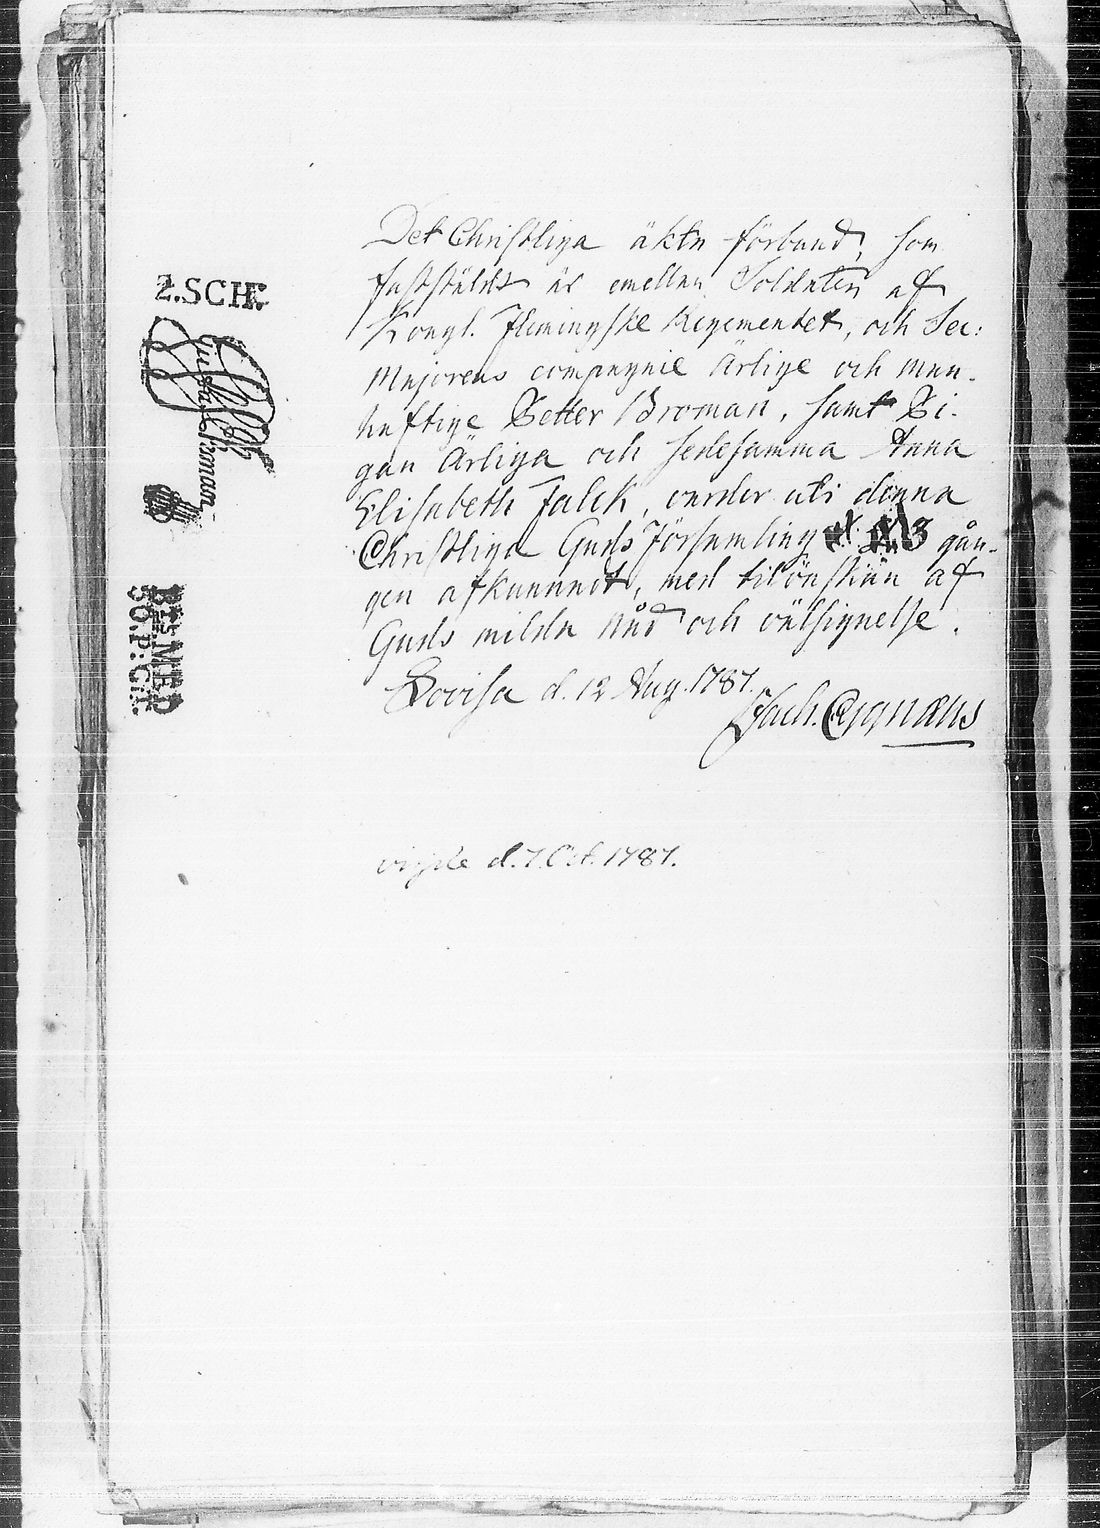 2.SCH:
BES.MED
30.P:C:T.
Det Christliga äkta förbund, som
fastställt är emellan Soldaten af
Kongl. Flemingske Regementet, och Sec:
Majorens compagnie Ärlige och man-
haftige Petter Broman, samt Pi-
gan Ärliga och sedesamma Anna
Elisabeth Falck, varder uti denna
Christliga Guds Församling 3 gån-
gen afkunnadt, med tilönskan af
Guds milda nåd och välsignelse.
Lovisa d. 12 Aug. 1787.
Zach. Cygnæus
vigde d. 7. Oct. 1787.